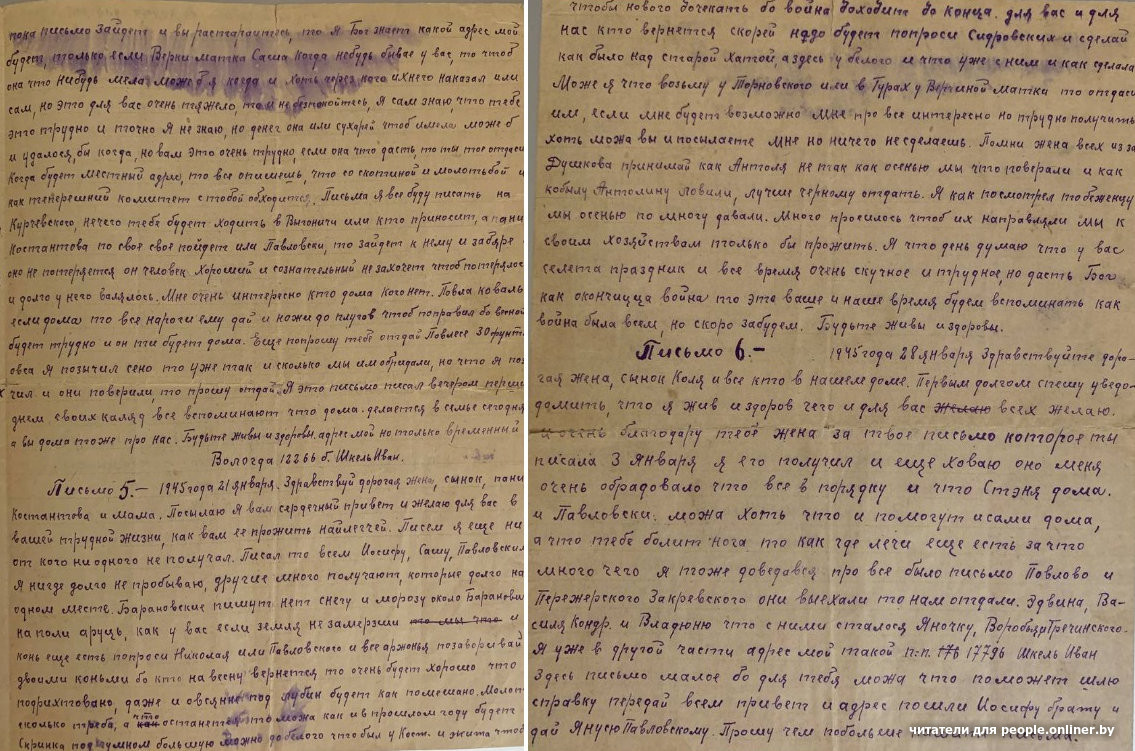 пока письмо зайдет и вы растараитесь, то Я Бог знает какой адрес мой
будет, только если Верки матка Саша когда небудь бывае у вас, то чтоб
она что нибудь мела може б я когда и хоть через кого ихнего наказал или
сам, но это для вас очень тяжело, то мне безпокойтесь, Я сам знаю, что тебе
это трудно и точно Я не знаю, но денег она или сухарей чтоб имела може б
и удалося бы когда, но вам это очень трудно, если она что дасть, то ты тое отдаси
Когда будет местный адрес, то все опишешь, что со скотиной и молотьбой и
как теперешний комитет с тобой обходится. Письма я все буду писать на
Курчевского, нечего тебе будет ходить в Выгоничи или кто приносит, а пани
Костантова по свое свое пойдет или Павловски, то зайдет к нему и забяре
оно не потеряется он человек хороший и сознательный не захочет чтоб потерялос
и долго у него валялось. Мне очень интересно кто дома кого нет. Повла коваль
если дома то все нароги ему дай и ножи до плугов чтоб поправил бо весной
будет трудно и он ти будет дома. Еще попрошу тебе отдай Повлесе 30 фунт.
овса Я позычил сено то уже так и сколько мы им обридали, но что Я поз
чил и они поверили то прошу отдай. Я это письмо писал вечером перши
днем своих каляд все вспоминают что дома делается в семье сегодня
а вы дома тоже про нас. Будьте живы и здоровы. адрес мой но только временный
Вологда 12266 б. Шкель Иван.
Письмо 5.- 1945 года 21 января. Здравствуй дорогая жена, сынок, пани
Костантова и мама. Посылаю Я вам сердечный привет и желаю для вас в
вашей трудной жизни, как вам ее прожить найлегчей. Писем я еще ни
от кого ни одного не получал. Писал то всем Иосифу, Сашу, Павловским
Я нигде долго не пробываю, другие много получают, которые долго на
одном месте. Барановские пишут нет снегу и морозу около Баранович
на поли аруць, как у вас если земля не замерзши то мы что и
конь еще есть попроси Николая или Павловского и все аржонья позаворивай
двоими коньми бо кто на весну вернется то очень будет хорошо что
подрихтовано, даже и овсянне под лубин будет как помешано. Молот
сколько треба, а что останется то можа как и в прошлом году будет
Скринка под гумном большую можно до белого что был у Кост. и зжита чтоб
чтобы нового дочекать бо война доходит до конца. для вас и для
нас кто вернется скорей надо будет попроси Сидровских и сделай
как было над старой хатой, а здесь у белого и что уже с ним и как сделала
Може я что возьму у Торновского или в Гурах у Вергиной матки то отдаси
им, если мне будет возможно мне про все интересно но трудно получить
хоть можа вы и посылаете мне но ничего не сделаешь. Помни жена всех из за
Душкова принимай как Антоля не так как осенью мы что поверали и как
кобылу Антолину ловили, лучше черному отдать. Я как посмотрел то беженцу
мы осенью по многу давали. Много просилось чтоб их направляли мы к
своим хозяйствам только бы прожить. Я что день думаю что у вас
селета праздник и все время очень скучное и трудное, но дасть Бог
как окончицца война то эта ваше и наше время будем вспоминать как
война была всем, но скоро забудем. Будьте живы и здоровы.
Письмо 6.- 1945 года 28 января Здравствуйте доро-
гая жена, сынок Коля и все кто в нашем доме. Первым долгом спешу уведо-
домить, что я жив и здоров чего и для вас желаю всех желаю.
и очень благодару тебе жена за твое письмо которое ты
писала 3 января я его получил и еще ховаю оно меня
очень обрадовало что все в порядку и что Стэня дома.
и Павловски. можа хоть что и помогут и сами дома,
а что тебе болит нога то как где лечи еще есть за что
много чего я тоже доведався про все было письмо Повлово и
Пережерского Закревского они выехали то нам отдали. Эдвина, Ва-
силя Кондр. и Владюню что с ними сталося Яночку, Воробья и Тречинского.
Я уже в другой части адрес мой такой п.п. 176 17796 Шкель Иван
Здесь письмо малое бо для тебя можа что поможет шлю
справку передай всем привет и адрес пошли Иосифу брату и
дай Янусю Павловскому. Прошу чем побольше
читатели для people.onliner.by